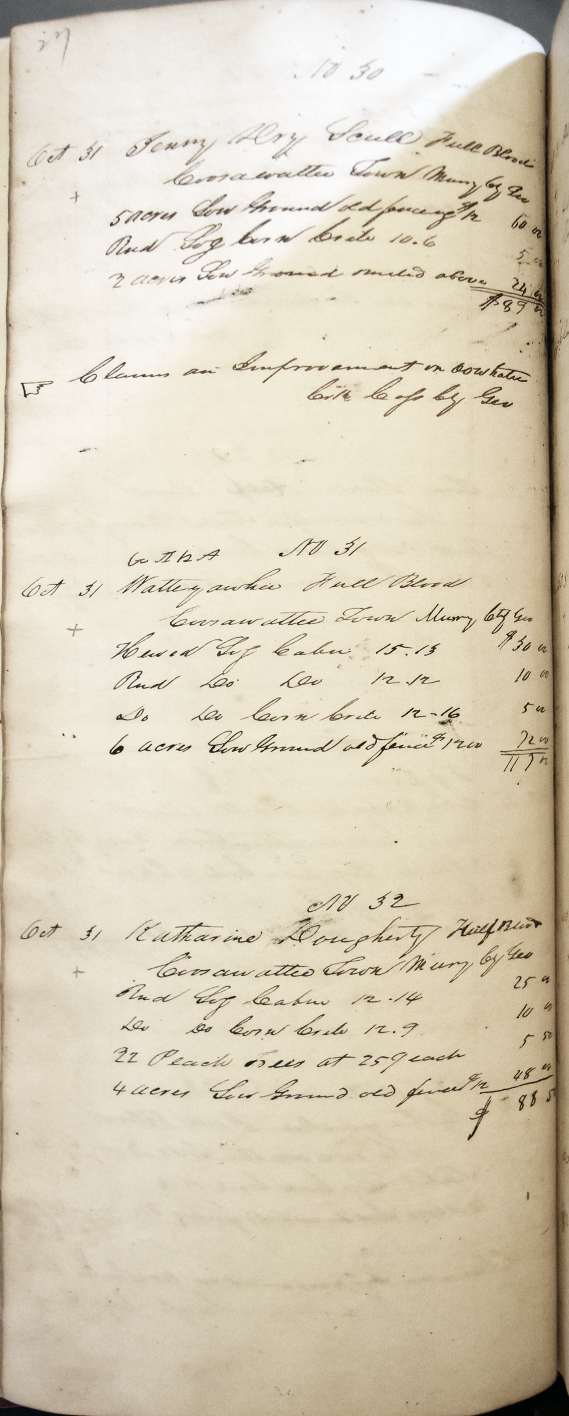 27
No 30
Oct 31 Jenny Dry Scull Full Blood
Coosawattee Town Murry Cty Geo
+
5 acres Low Ground old fencing $12 60 00
Rnd Log Corn Crib 10.6 5 00
2 acres Low Ground omited above 24 00
$89 00
Claims an Improvement on
Crk Cass Cty Geo
No 31
Oct 31 Watteyawhee Full Blood
Coosawattee Town Murry Cty Geo
+
Hewed Log Cabin 15.13 $30 00
Rnd Do Do 12.12 10 00
Do Do Corn Crib 12-16 5 00
6 acres Low Ground old fence $12 00 72 00
117 00
No 32
Oct 31 Katharine Dougherty Half Blood
Coosawattee Town Murry Cty Geo
+
Rnd Log Cabin 12.14 25 00
Do Do Corn Crib 12.9 10 00
22 Peach Trees at 25 each 5 50
4 acres Low Ground old fence $12 48 00
$ 88 50